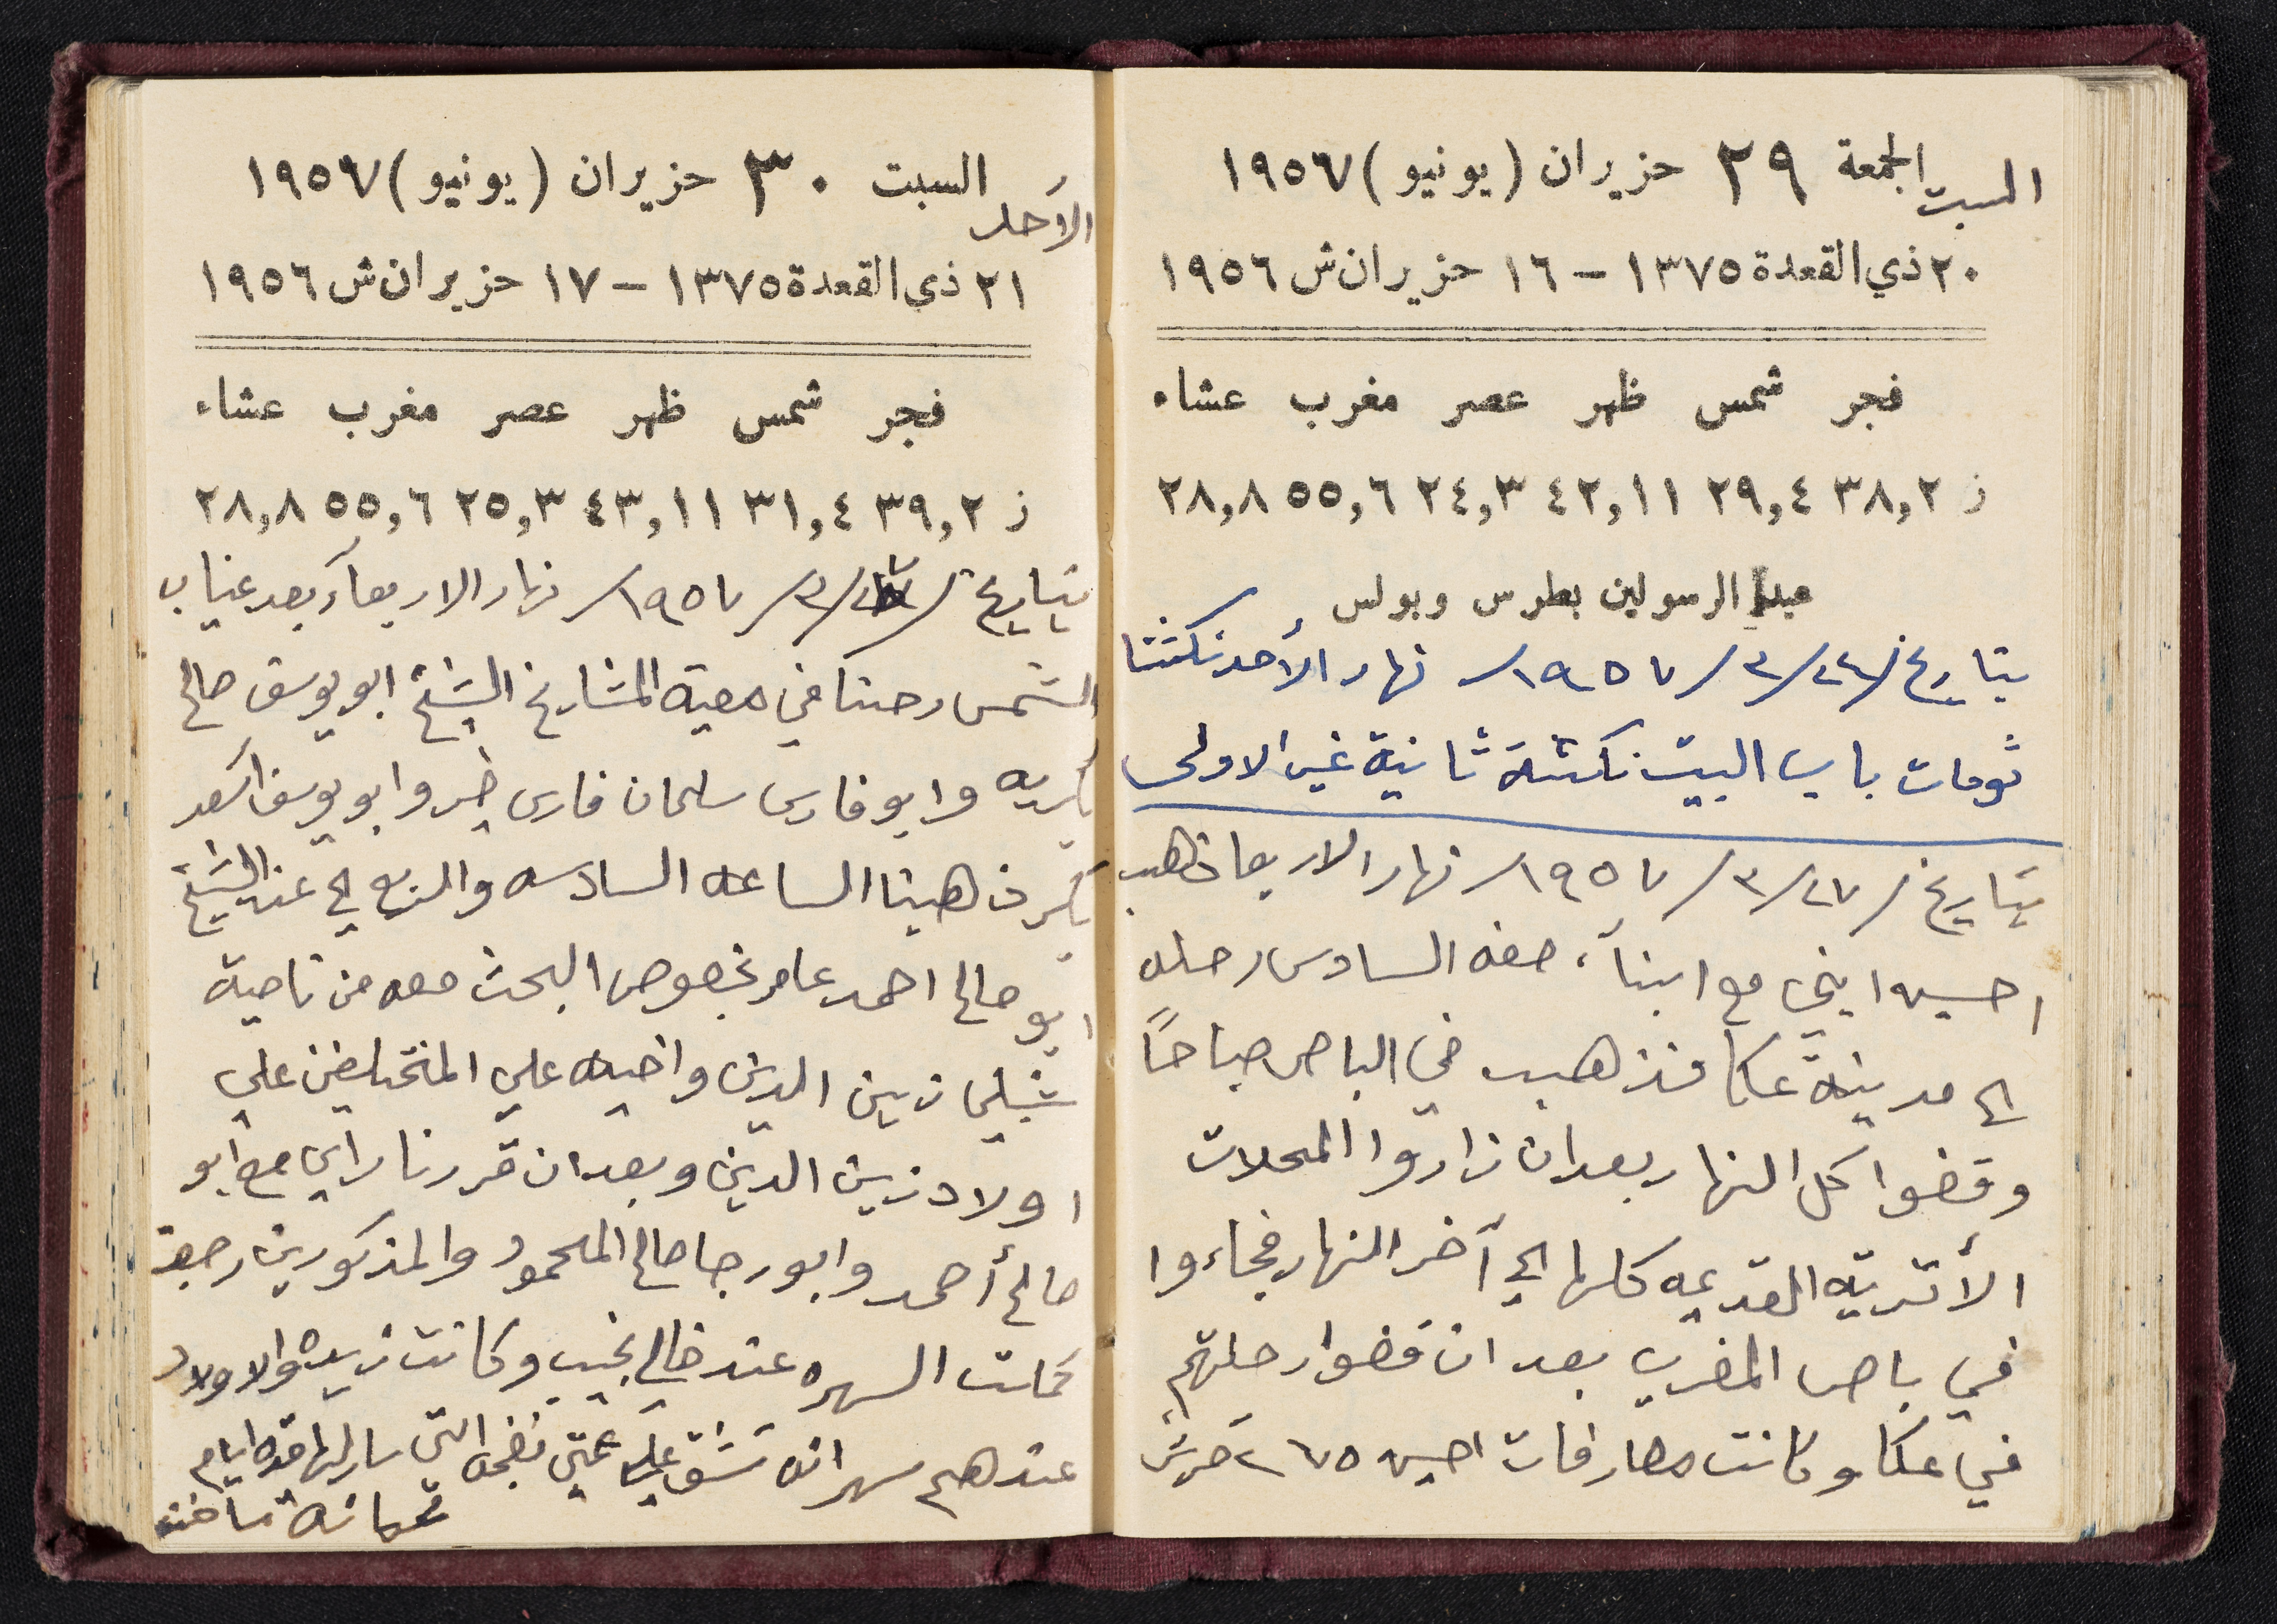 السبت الجمعة ٢٩ حزيران (يونيو) ١٩٥٧
٢٠ ذي القعدة ١٣٧٥ - ١٦ حزيران ش ١٩٥٦
فجر شمس ظهر عصر مغرب عشاء
ز ٣٨,٢ ٢٩,٤ ٤٢,١١ ٢٤,٣ ٥٥,٦ ٢٨,٨
عيد الرسولين بطرس وبولس
بتاريخ /٢٤/٣/١٩٥٧/ نهار الأحد نكشنا
ثومات باب البيت نكشة ثانية غير الاولى
بتاريخ /٢٧/٣/١٩٥٧/ نهار الاربعا ذهب
احسين ابني مع ابنآء صفه السادس رحله
الى مدينة عكا فذهب في الباص صباحاً
وقضوا كل النهار بعد ان زاروا المحلات
الأثرية القديمه كلها الى آخر النهار فجاءوا
في باص المغرب بعد ان قضوا رحلتهم
في عكا وكانت مصارفات احسين ٢٦٥ قرش
السبت ٣٠ حزيران (يونيو) ١٩٥٧
الأحد
٢١ ذي القعدة ١٣٧٥ - ١٧ حزيران ش ١٩٥٦
فجر شمس ظهر عصر مغرب عشاء
ز ٣٩,٢ ٣١,٤ ٤٣,١١ ٢٥,٣ ٥٥,٦ ٢٨,٨
بتاريخ /٣/١٩٥٧/ نهار الاربعآء بعد غياب
الشمس رحنا في معية المشايخ الشيخ ابو يوسف صالح
وابو فارس سلمان فارس خير وابو يوسف اسعد
ذهبنا الساعه السادسه والربع الى عند الشيخ
ابو صالح احمد عامر بخصوص البحث معه من ناحية
شبلي زين الدين واخيه علي المتخلفين علي
اولاد زين الدين وبعد ان قررنا راي مع ابو
صالح أحمد وابو رجا صالح المحمود والمذكورين رجعة
كملت السهره عند خالي نجيب وكانت والاولاد
عندهم سهرانه تشقى على عمتي نجمه التي سار لها ايام